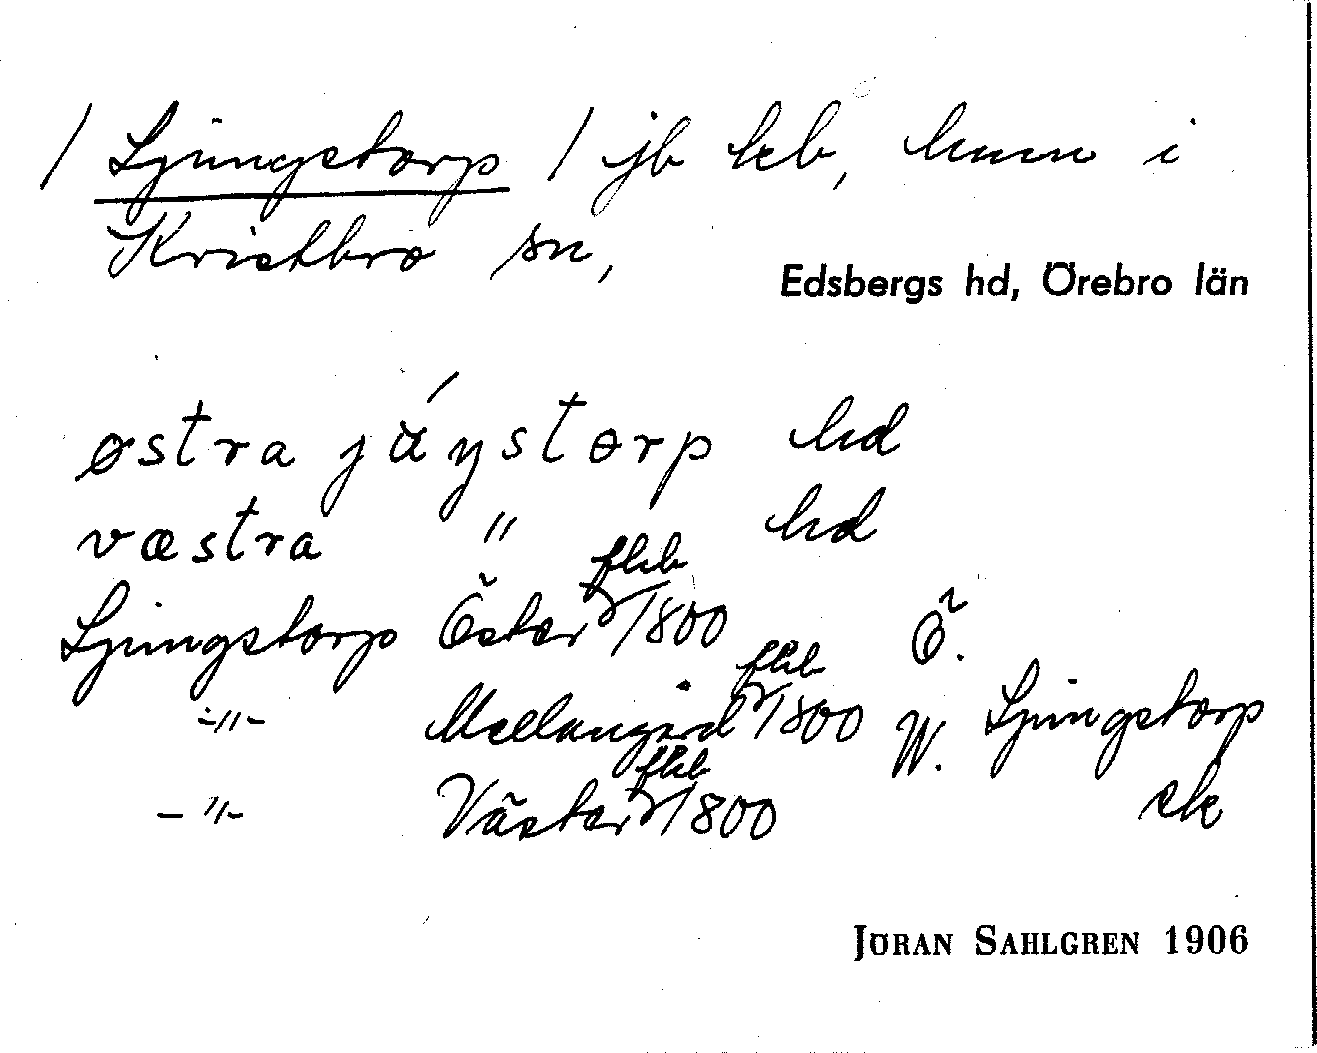 / Ljungstorp / jb leb, hmn i
Kristbro sn,
Edsbergs hd, Örebro län
østra jáŋstorp hd
væstra " hd
Ljungstorp Öster fkb 1/1800 Ö.
-"- Mellangård fkb 1/1800 W. Ljungstorp
-"- Väster fkb 1/1800 sk
JÖRAN SAHLGREN 1906